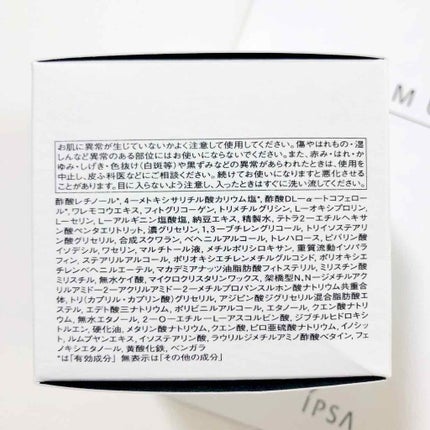 MU
お肌に異常が生じていないかよく注意して使用してください。傷やはれもの・湿
しんなど異常のある部位にはお使いにならないでください。また、赤み・はれ・か
ゆみ・しげき・色抜け(白斑等)や黒ずみなどの異常があらわれたときは、使用を
中止し、皮ふ科医などにご相談ください。続けてお使いになりますと悪化させる
ことがあります。目に入らないよう注意し、入ったときはすぐに洗い流してください。
酢酸レチノール*,4-メトキシサリチル酸カリウム塩*,酢酸DL-α-トコフェロー
ル*,ワレモコウエキス,フィトグリコーゲン,トリメチルグリシン,L-オキシプロリン,
L-セリン,L-アルギニン塩酸塩,納豆エキス,精製水,テトラ2-エチルヘキサ
ン酸ペンタエリトリット,濃グリセリン,1,3-ブチレングリコール,トリイソステアリ
ン酸グリセリル,合成スクワラン,ベヘニルアルコール,トレハロース,ピバリン酸
イソデシル,ワセリン,マルチトール液,メチルポリシロキサン,重質流動イソパラ
フィン,ステアリルアルコール,ポリオキシエチレンメチルグルコシド,ポリオキシエ
チレンベヘニルエーテル,マカデミアナッツ油脂肪酸フィトステリル,ミリスチン酸
ミリスチル,無水ケイ酸,マイクロクリスタリンワックス,架橋型N,N-ジメチルアク
リルアミド-2-アクリルアミド-2-メチルプロパンスルホン酸ナトリウム共重合
体,トリ(カプリル・カプリン酸)グリセリル,アジピン酸ジグリセリル混合脂肪酸エ
ステル,エデト酸三ナトリウム,ポリビニルアルコール,エタノール,クエン酸ナトリ
ウム,無水エタノール,2-O-エチル-L-アスコルビン酸,ジブチルヒドロキシト
ルエン,硬化油,メタリン酸ナトリウム,クエン酸,ピロ亜硫酸ナトリウム,イノシッ
ト,ルムプヤンエキス,イソステアリン酸,ラウリルジメチルアミノ酢酸ベタイン,フェ
ノキシエタノール,黄酸化鉄,ベンガラ
*は「有効成分」無表示は「その他の成分」
IPSA